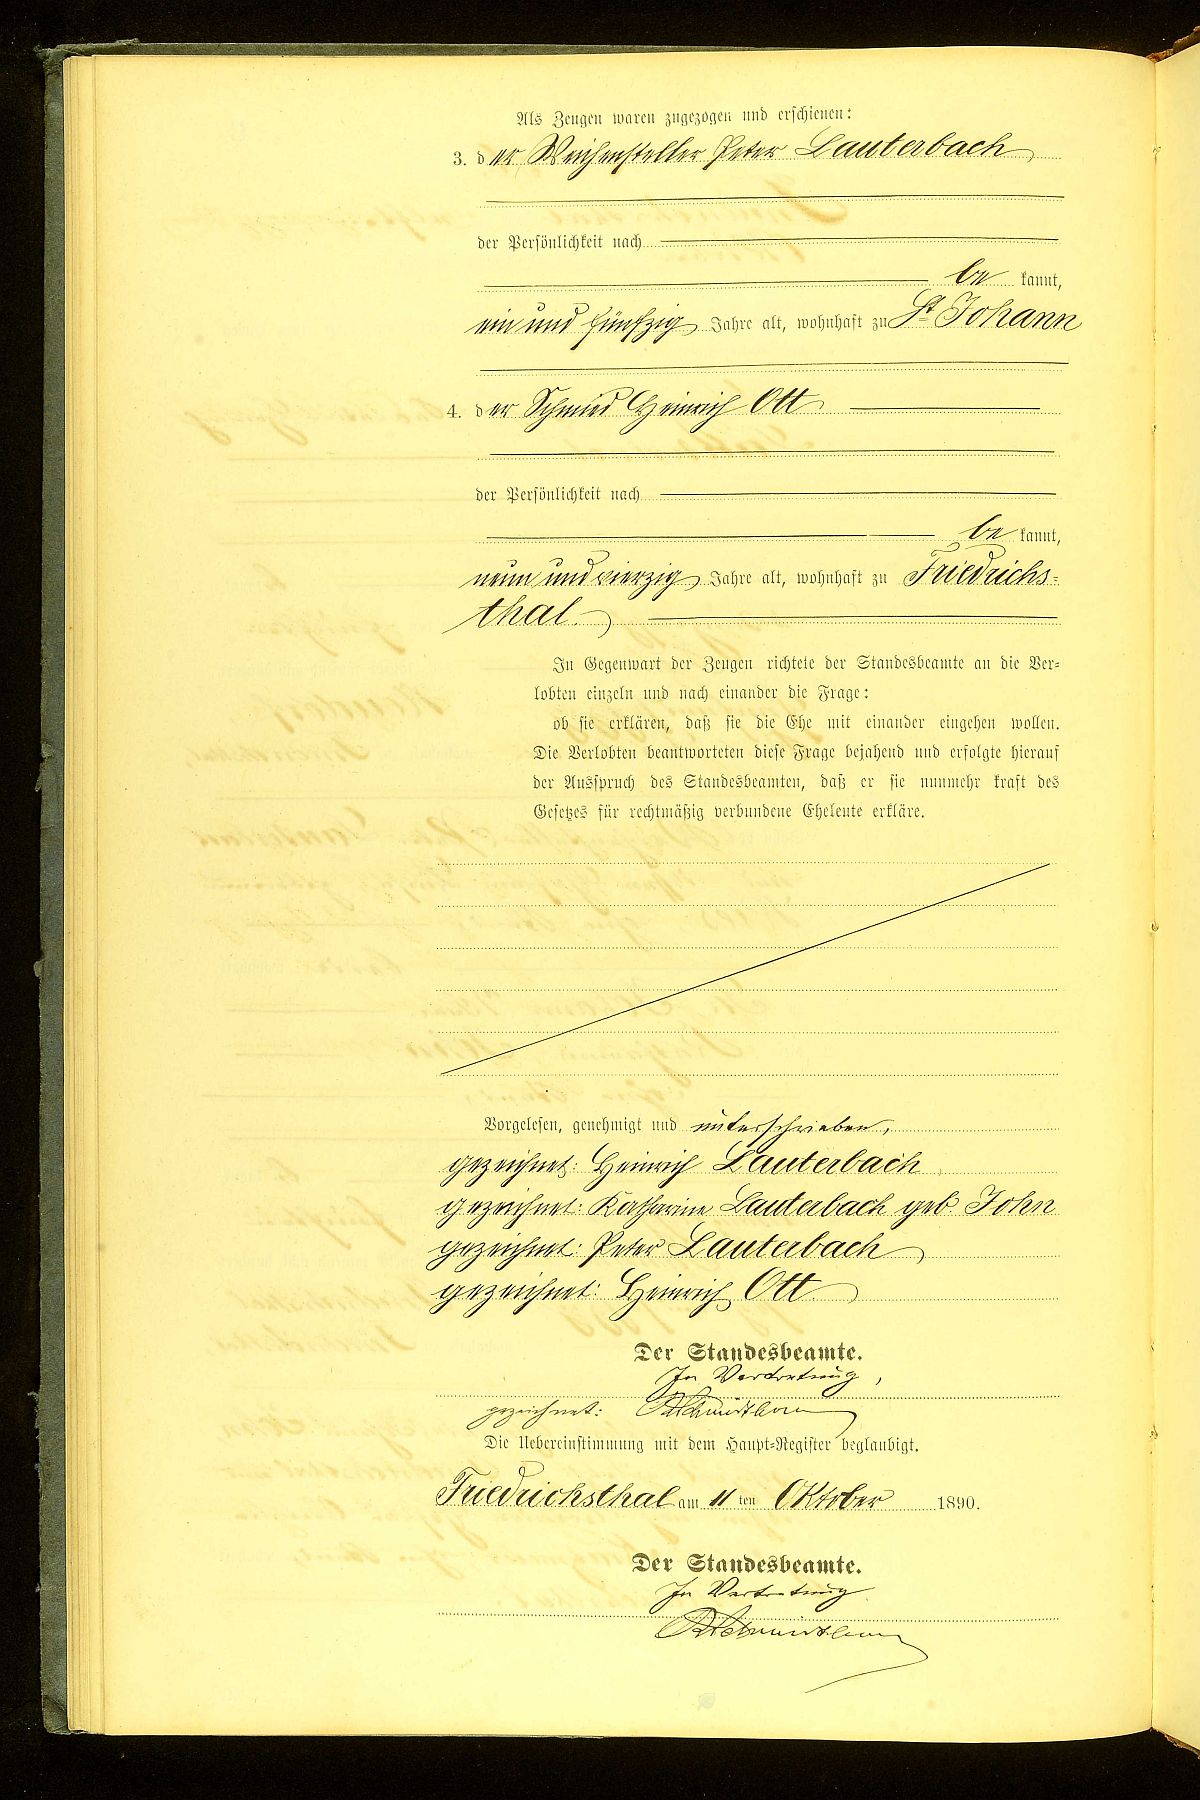 Als Zeugen waren zugezogen und erschienen:
3. der Weichensteller Peter Lauterbach
der Persönlichkeit nach
be kannt,
ein und fünfzig Jahre alt, wohnhaft zu St Johann
4. der Schmied Heinrich Ott
der Persönlichkeit nach
be kannt,
neun und vierzig Jahre alt, wohnhaft zu Friedrichs-
thal.
In Gegenwart der Zeugen richtete der Standesbeamte an die Ver-
lobten einzeln und nach einander die Frage:
ob sie erklären, daß sie die Ehe mit einander eingehen wollen.
Die Verlobten beantworteten diese Frage bejahend und erfolgte hierauf
der Ausspruch des Standesbeamten, daß er sie nunmehr kraft des
Gesetzes für rechtmäßig verbundene Eheleute erkläre.
Vorgelesen, genehmigt und unterschrieben,
gezeichnet: Heinrich Lauterbach
gezeichnet: Katharine Lauterbach geb John
gezeichnet: Peter Lauterbach
gezeichnet: Heinrich Ott
Der Standesbeamte.
In Vertretung,
gezeichnet:
Die Uebereinstimmung mit dem Haupt-Register beglaubigt.
Friedrichsthal am 11 ten Oktober 1890.
Der Standesbeamte.
In Vertretung